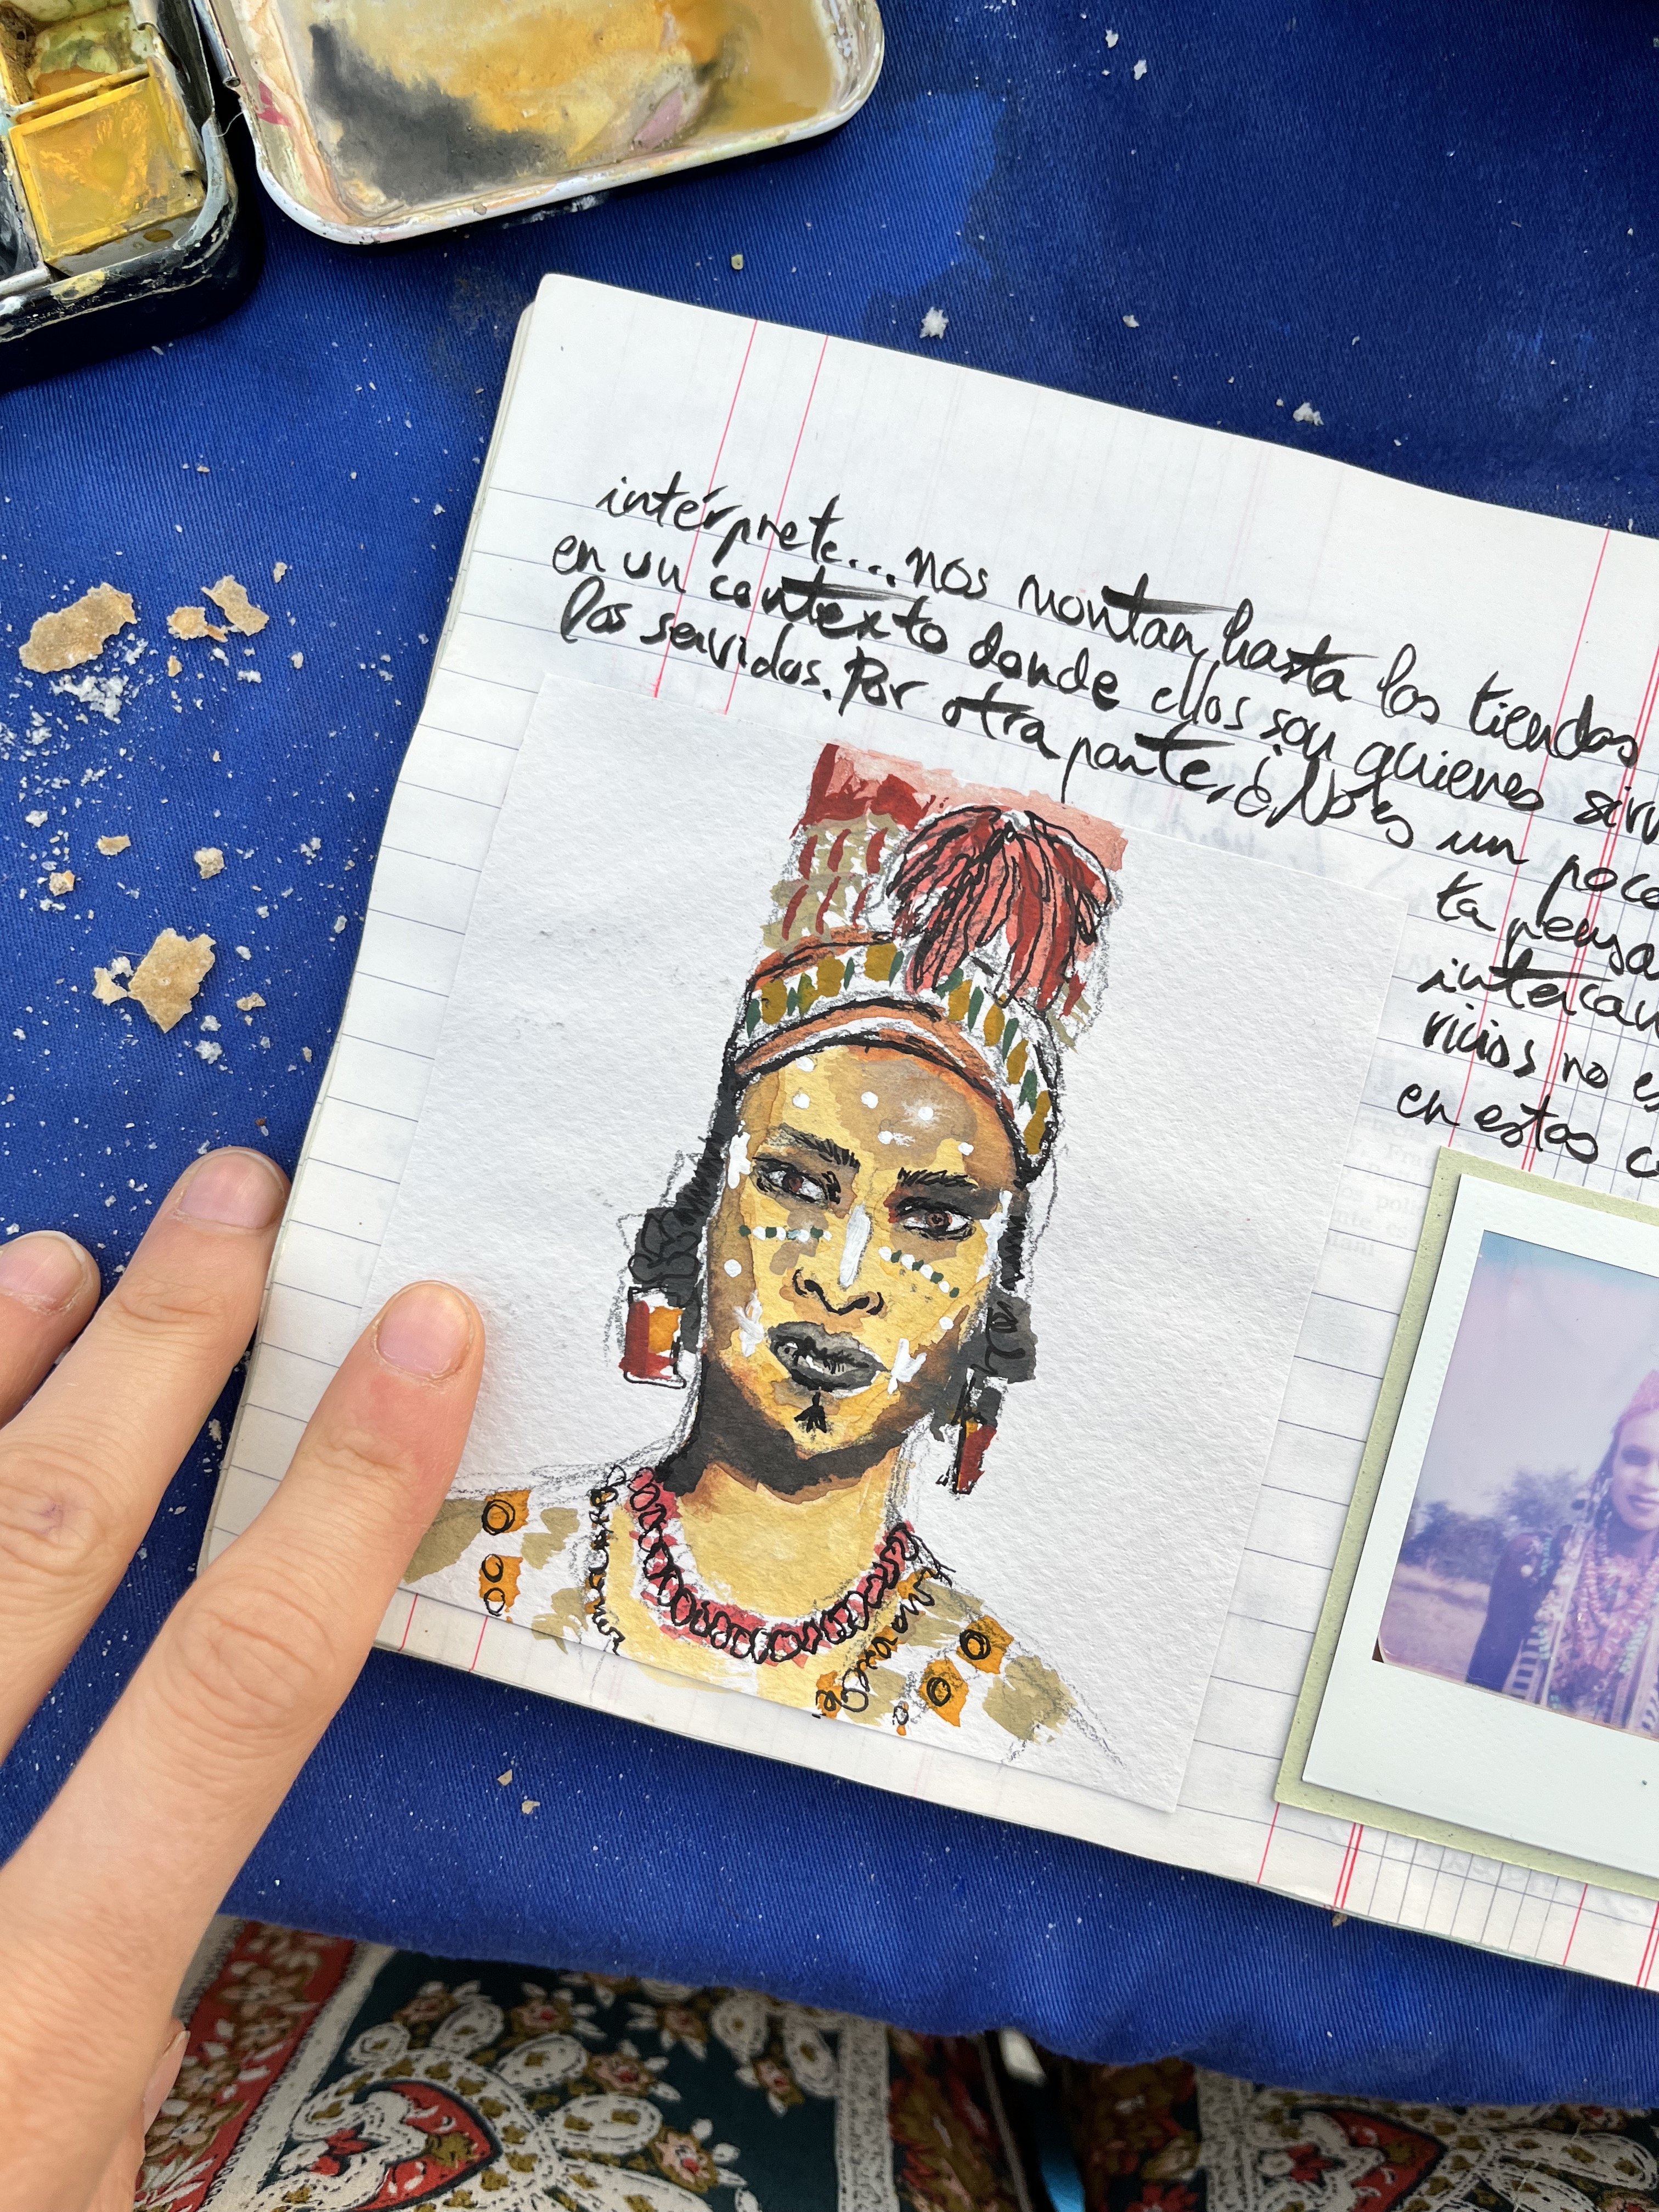 intérprete... nos montan hasta las tiendas
en un contexto donde ellos son quienes sirv
los servidos. Por otra parte, ¿No es un poco
ta pensa
intercam
vicios no es
en estos c